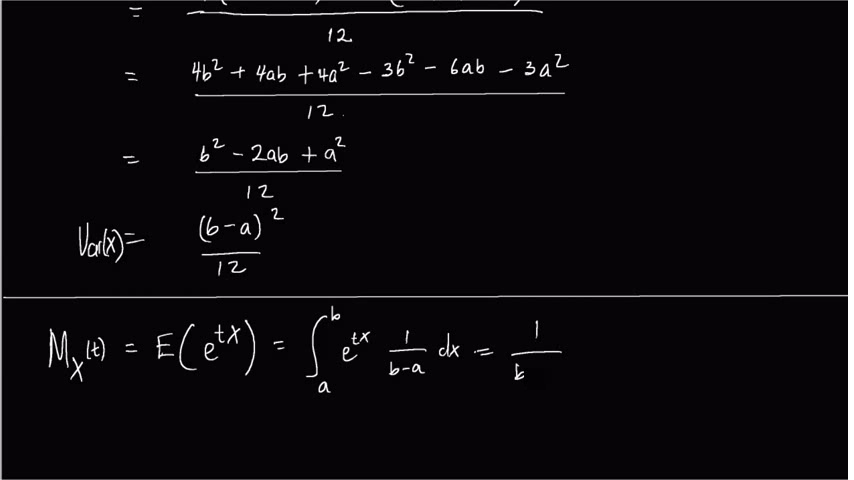 = 12
= 4b² + 4ab + 4a² - 3b² - 6ab - 3a² / 12
= b² - 2ab + a² / 12
Var(X) = (b-a)² / 12
M_X(t) = E(e^{tX}) = ∫_a^b e^{tx} 1/(b-a) dx = 1/b